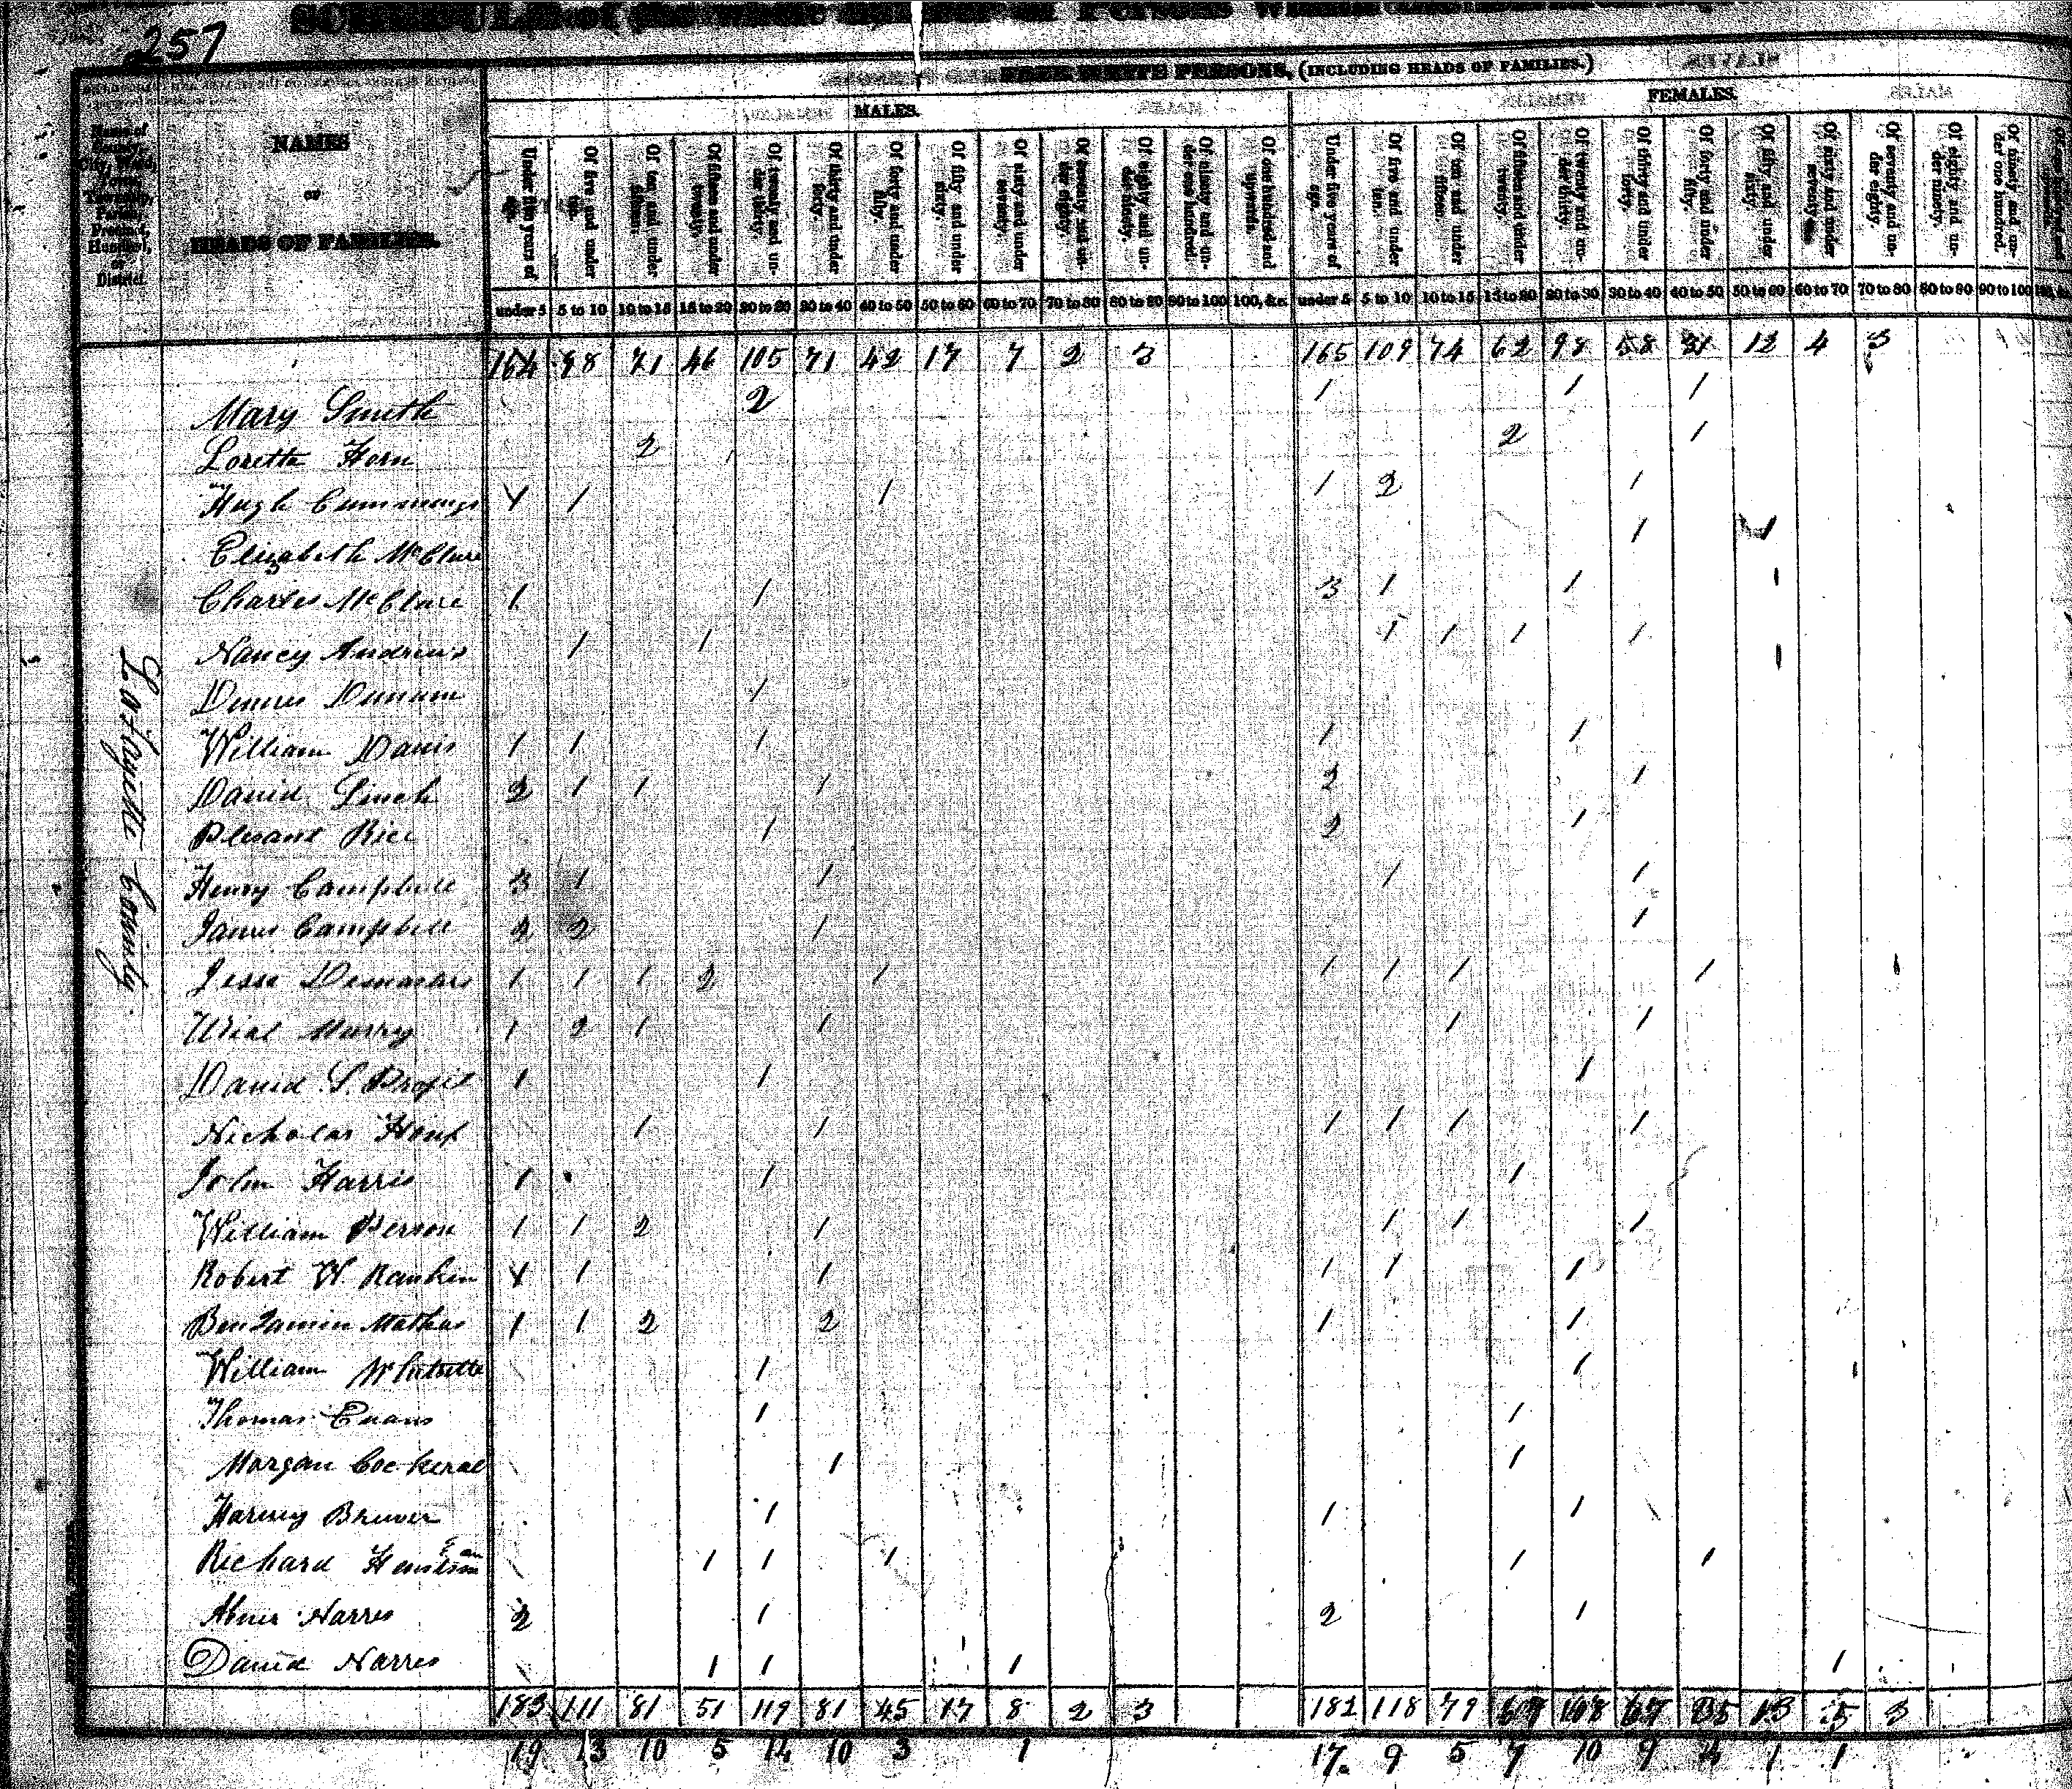 257
SCHEDULE of the whole number of Persons within
FREE WHITE PERSONS, (INCLUDING HEADS OF FAMILIES.)
MALES. FEMALES.
Name of County, City, Ward, Town, Township, Parish, Precinct, Hundred, or District.
NAMES
OF
HEADS OF FAMILIES.
Under five years of age. Of five and under ten. Of ten and under fifteen. Of fifteen and under twenty. Of twenty and under thirty. Of thirty and under forty. Of forty and under fifty. Of fifty and under sixty. Of sixty and under seventy. Of seventy and under eighty. Of eighty and under ninety. Of ninety and under one hundred. Of one hundred and upwards. Under five years of age. Of five and under ten. Of ten and under fifteen. Of fifteen and under twenty. Of twenty and under thirty. Of thirty and under forty. Of forty and under fifty. Of fifty and under sixty. Of sixty and under seventy. Of seventy and under eighty. Of eighty and under ninety. Of ninety and under one hundred.
under 5 5 to 10 10 to 15 15 to 20 20 to 30 30 to 40 40 to 50 50 to 60 60 to 70 70 to 80 80 to 90 90 to 100 100, &c. under 5 5 to 10 10 to 15 15 to 20 20 to 30 30 to 40 40 to 50 50 to 60 60 to 70 70 to 80 80 to 90 90 to 100
164 98 71 46 105 71 42 17 7 2 3 165 109 74 62 98 58 31 12 4 3
Mary Smith 2 1 1 1
Loretta Horn 2 2 1
Hugh Cummings 1 1 1 2 1
Elizabeth McClure 1 1
Charles McClure 1 1 3 1 1
Nancy Andrews 1 1 1 1 1 1
Dennis Dunam 1
William Davis 1 1 1 1 1
David Linch 2 1 1 1 2 1
Plesant Rice 1 2 1
Henry Campbell 3 1 1 1 1
James Campbell 2 2 1 1
Jesse 1 1 1 2 1 1 1 1 1
Urial Murry 1 2 1 1 1 1
David S. Profit 1 1 1
Nicholas Houx 1 1 1 1 1 1
John Harris 1 1 1
William Person 1 1 2 1 1 1 1
Robert W. Rankin 1 1 1 1 1
Benjamin Mathas 1 1 2 2 1 1
William Whitsette 1 1
Thomas Evans 1 1
Morgan Cockeral 1 1
Harvey Bruver 1 1 1
Richard 1 1 1 1 1
Abner Narres 2 1 2 1
David Narres 1 1 1 1
Lafayette County
183 111 81 51 119 81 45 17 8 2 3 182 118 79 69 108 67 35 13 5 3
19 13 10 5 14 10 3 1 17 9 5 7 10 9 4 1 1